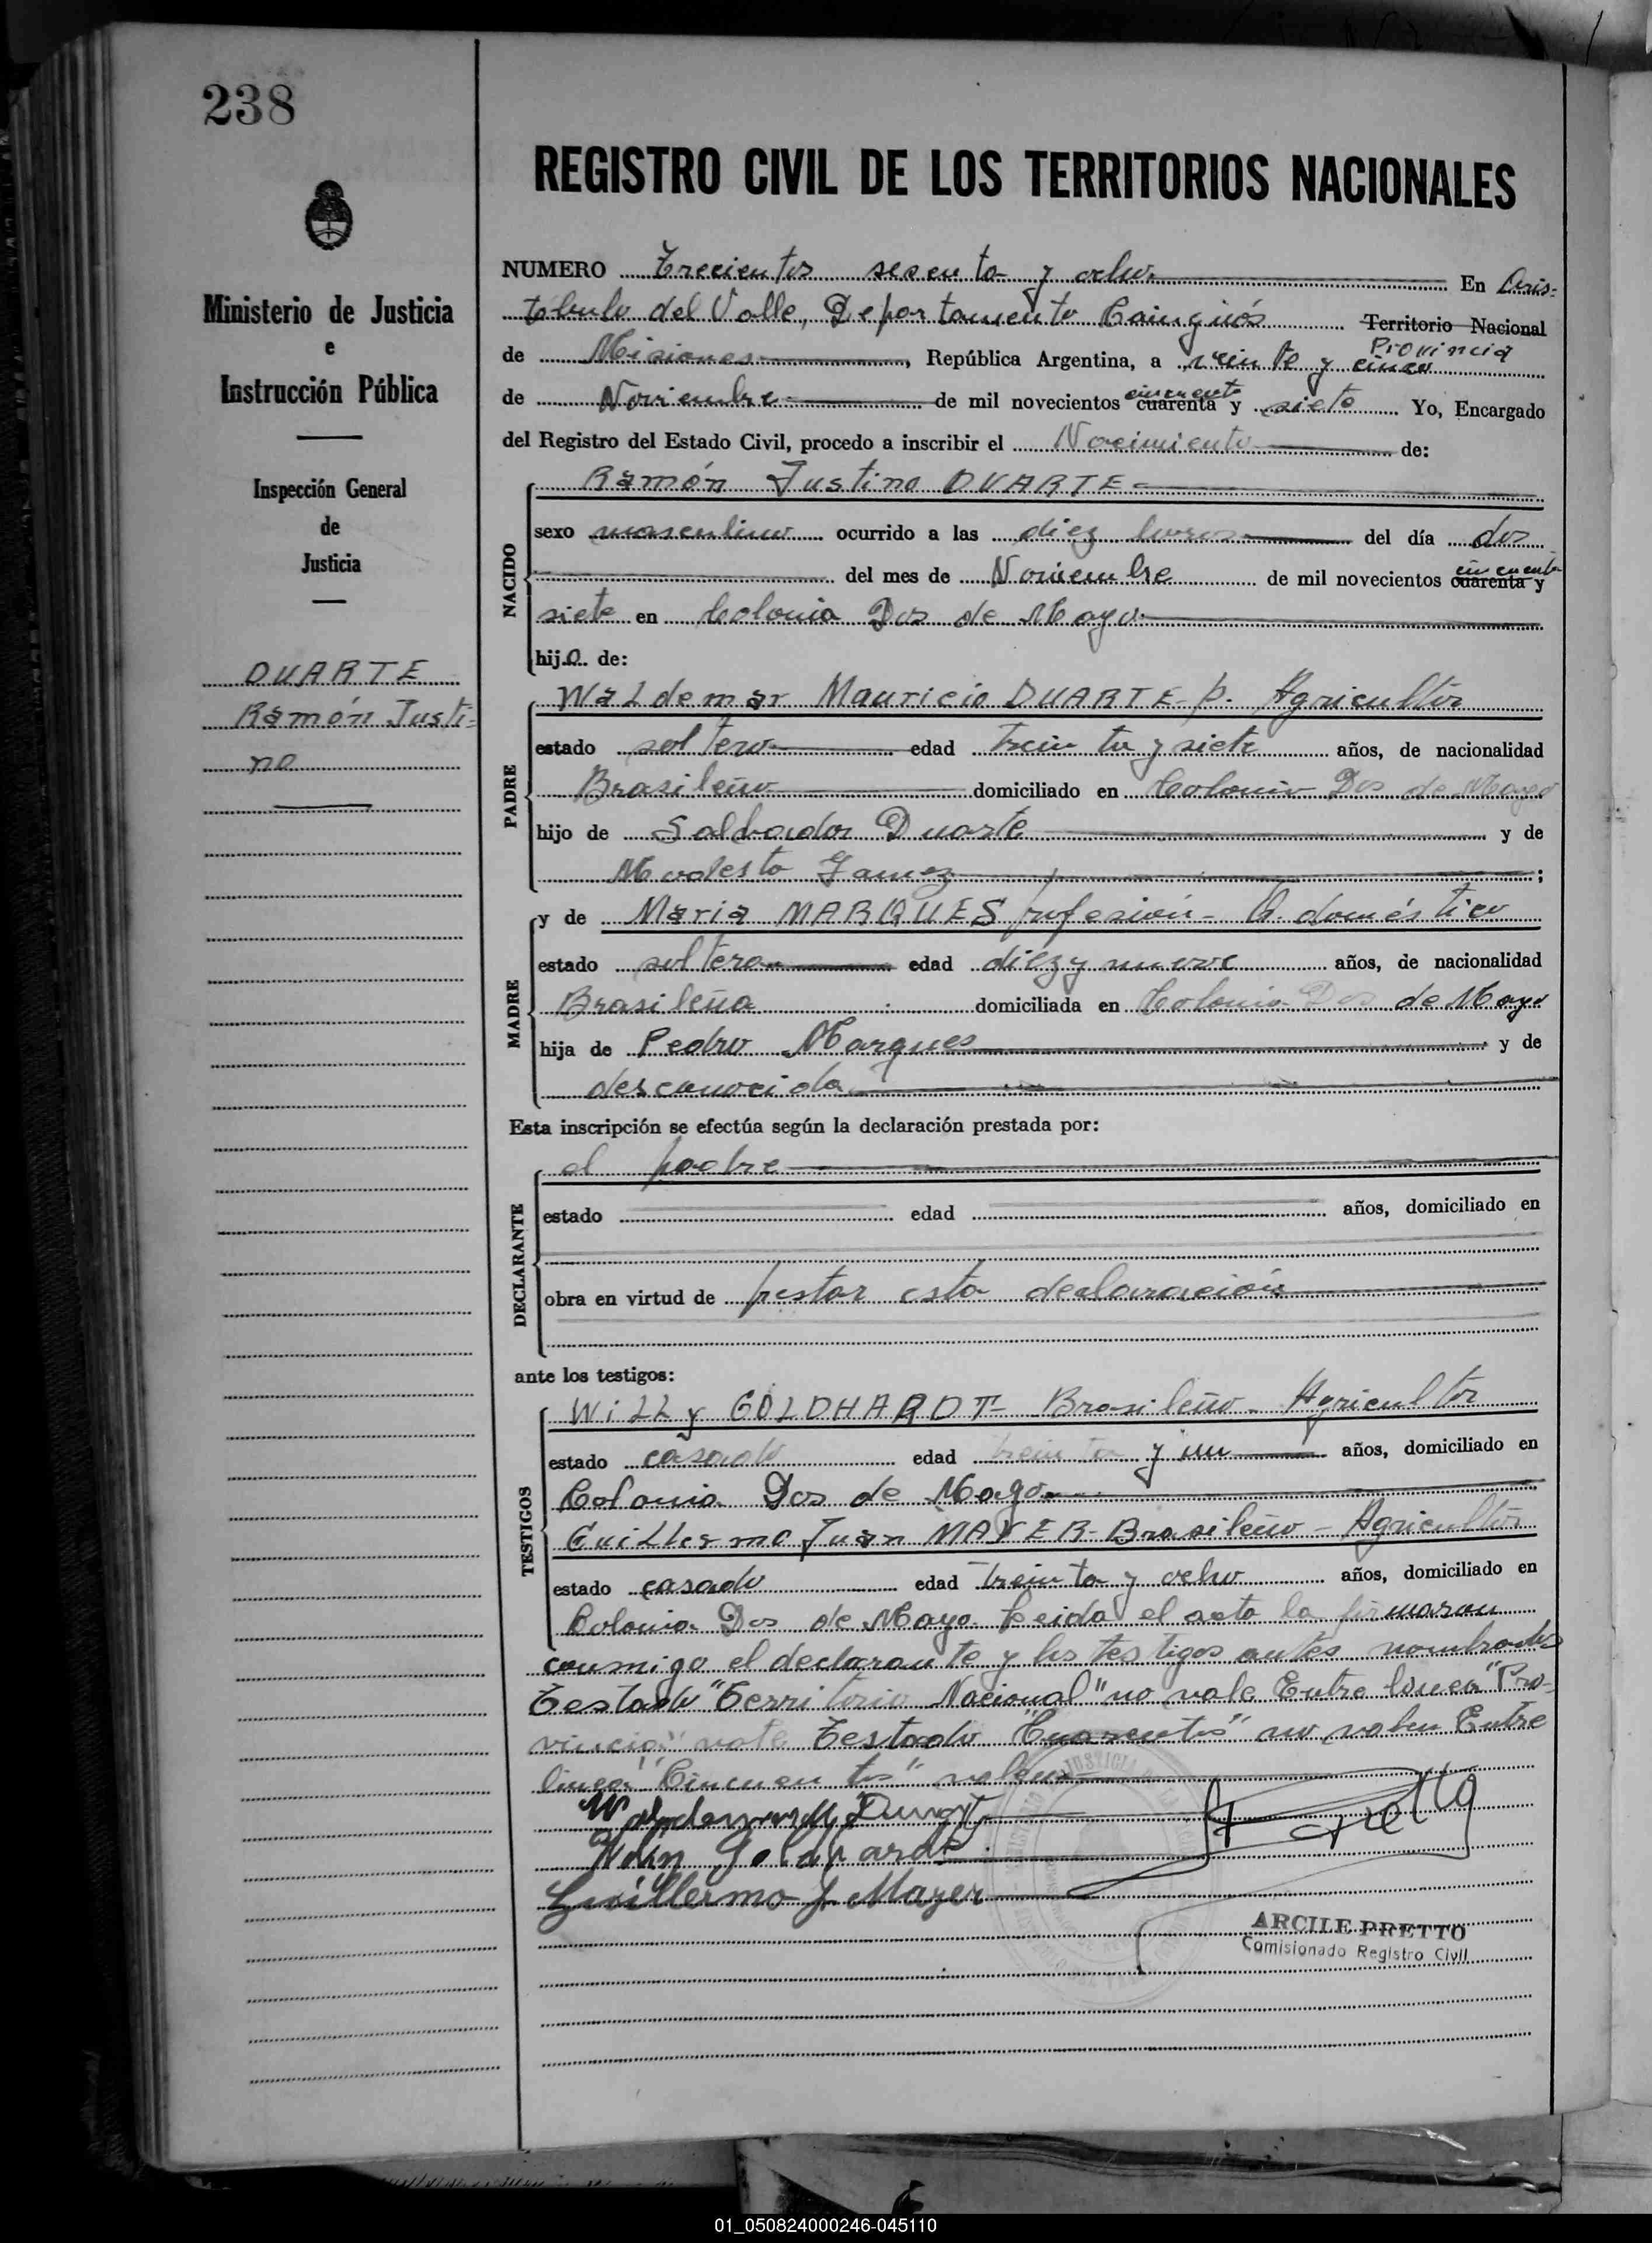 238
REGISTRO CIVIL DE LOS TERRITORIOS NACIONALES
Ministerio de Justicia
e
Instrucción Pública
Inspección General
de
Justicia
DUARTE
Ramón Justi=
no
NUMERO Trecientos sesenta y ocho En Aris=
tobulo del Valle, Departamento Cainguás Territorio Nacional
Provincia
de Misiones, República Argentina, a veinte y cinco
cincuenta
de Noviembre de mil novecientos cuarenta y siete Yo, Encargado
del Registro del Estado Civil, procedo a inscribir el Nacimiento de:
NACIDO
Ramón Justino DUARTE
sexo masculino ocurrido a las diez horas del día dos
cincuenta
del mes de Noviembre de mil novecientos cuarenta y
siete en Colonia Dos de Mayo
hijo de:
PADRE
Waldemar Mauricio DUARTE - p. Agricultor
estado soltero edad treinta y siete años, de nacionalidad
Brasileño domiciliado en Colonia Dos de Mayo
hijo de Salbador Duarte y de
Modesta ;
MADRE
y de Maria MARQUES profesión - Q. doméstico
estado soltera edad diez y nueve años, de nacionalidad
Brasileña domiciliada en Colonia Dos de Mayo
hija de Pedro Marques y de
desconocida
Esta inscripción se efectúa según la declaración prestada por:
DECLARANTE
el padre
estado edad años, domiciliado en
obra en virtud de prestar esta declaración
ante los testigos:
TESTIGOS
Willy GOLDHARDT - Brasileño - Agricultor
estado casado edad treinta y un años, domiciliado en
Colonia Dos de Mayo
Guillermo Juan MAYER - Brasileño - Agricultor
estado casado edad treinta y ocho años, domiciliado en
Colonia Dos de Mayo Leida el acta la firmaron
conmigo el declarante y los testigos antes nombrados
Testado "Territorio Nacional" no vale Entre linea "Pro-
vincia" vale Testado "Cuarenta" no valen Entre
linea "Cincuenta" valen
Guillermo J. Mayer
ARCILE PRETTO
Comisionado Registro Civil
01_050824000246-045110